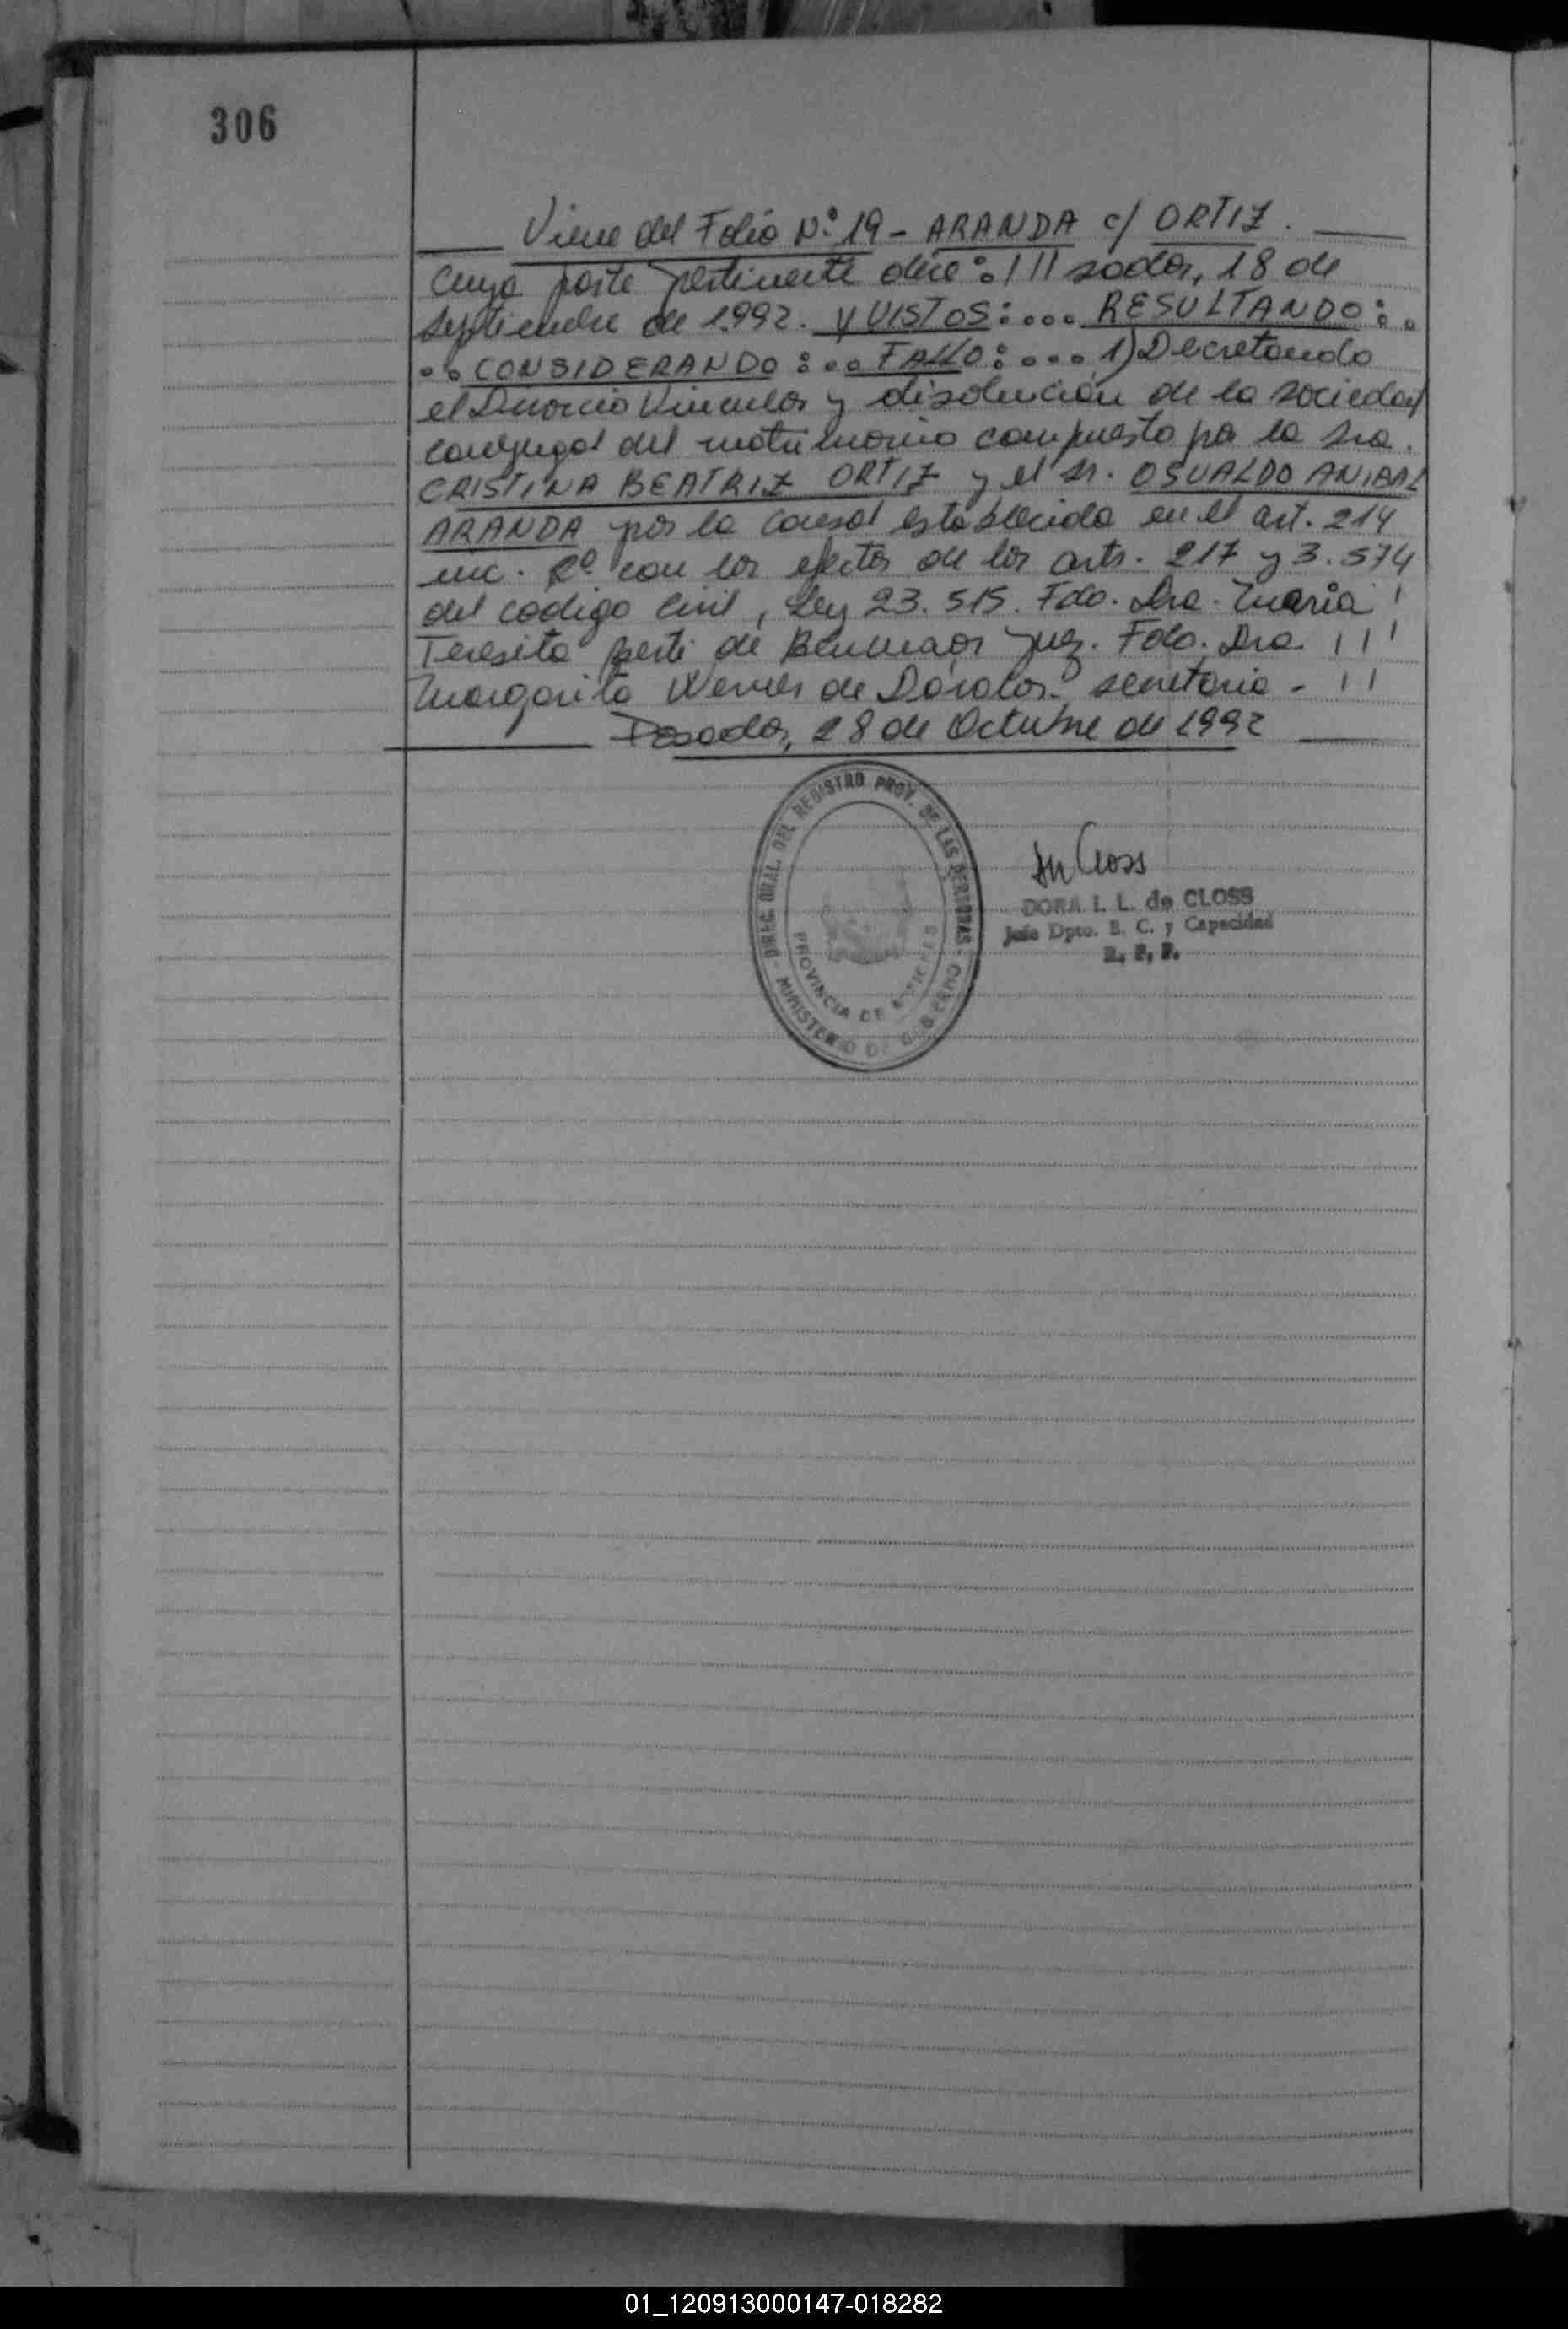 306
Viene del Folio Nº 19 - ARANDA c/ ORTIZ.
Cuya parte pertinente dice: /// sadas, 18 de
Septiembre de 1.992. Y VISTOS:... RESULTANDO:.
.. CONSIDERANDO:.. FALLO:... 1) Decretando
el Divorcio Vincular y disolución de la sociedad
conyugal del matrimonio compuesto por la Sra.
CRISTINA BEATRIZ ORTIZ y el Sr. OSVALDO ANIBAL
ARANDA por la causal establecida en el art. 214
inc. 2º con los efectos de los arts. 217 y 3.574
del codigo Civil, Ley 23.515. Fdo. Dra. Maria /
Teresita de Juez. Fdo. Dra. ///
Margarita de secretaria - //
Posadas, 28 de Octubre de 1992
DIREC. GRAL. DEL REGISTRO PROV. DE LAS PERSONAS
PROVINCIA DE MISIONES
MINISTERIO DE GOBIERNO
DORA I. L. de CLOSS
Jefe Dpto. E. C. y Capacidad
R. P. P.
01_120913000147-018282